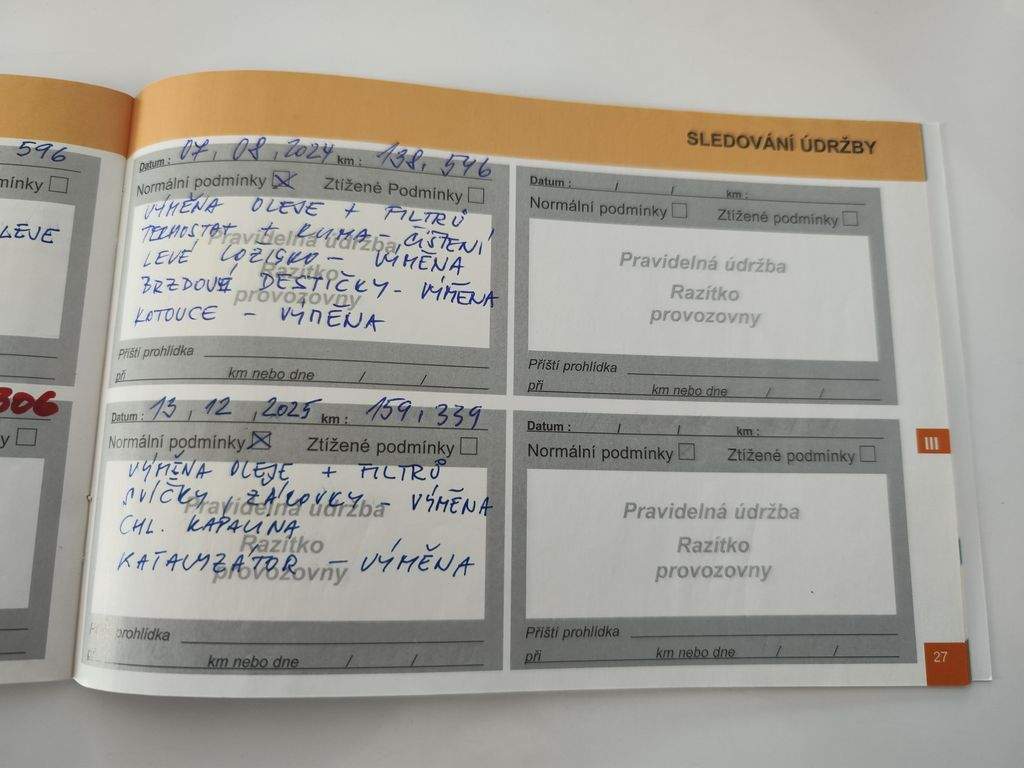 596
mínky
LEVÉ
306
y
SLEDOVÁNÍ ÚDRŽBY
Datum : 07, 08, 2024 km : 138, 546
Normální podmínky Ztížené Podmínky
Pravidelná údržba
Razítko
provozovny
VÝMĚNA OLEJE + FILTRŮ
TERMOSTAT + KLIMA - ČIŠTENÍ
LEVÉ LOŽISKO - VÝMĚNA
BRZDOVÉ DESTIČKY - VÝMĚNA
KOTOUCE - VÝMĚNA
Příští prohlídka
při km nebo dne / /
Datum : / / km :
Normální podmínky Ztížené podmínky
Pravidelná údržba
Razítko
provozovny
Příští prohlídka
při km nebo dne / /
Datum : 13, 12, 2025 km : 159, 339
Normální podmínky Ztížené podmínky
Pravidelná údržba
Razítko
provozovny
VÝMĚNA OLEJE + FILTRŮ
SVÍČKY, ŽÁROVKY - VÝMĚNA
CHL. KAPALINA
KATALYZÁTOR - VÝMĚNA
Příští prohlídka
při km nebo dne / /
Datum : / / km :
Normální podmínky Ztížené podmínky
Pravidelná údržba
Razítko
provozovny
Příští prohlídka
při km nebo dne / /
III
27